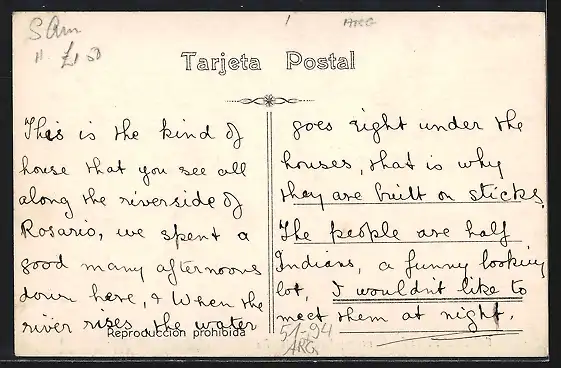 S Am
£1 50
ARG
Tarjeta Postal
This is the kind of
house that you see all
along the riverside of
Rosario, we spent a
good many afternoons
down here, & When the
river rises the water
goes right under the
houses, that is why
they are built on sticks.
The people are half
Indians, a funny looking
lot, I wouldn't like to
meet them at night.
Reproducción prohibida
51-94
ARG